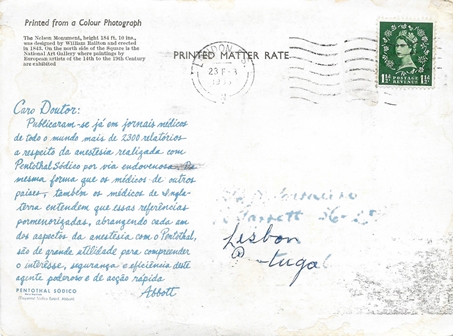 Printed from a Colour Photograph
The Nelson Monument, bright 184 ft. 10 ins.,
was designed by William Railton and erected
in 1843. On the north side of the Square is the
National Art Gallery where paintings by
European artists of the 14th to the 19th Century
are exhibited
PRINTED MATTER RATE
LONDON
23 FEB
1½D 1½D
POSTAGE
REVENUE
Caro Doutor:
Publicaram-se já em jornais médicos
de todo o mundo mais de 2300 relatórios
a respeito da anestésia realizada com
Pentothal Sódico por via endovenosa. Da
mesma forma que os médicos de outros
países, também os médicos de Ingla-
terra entendem que essas referências
pormenorizadas, abrangendo cada um
dos aspectos da anestesia com o Pentothal,
são de grande utilidade para compreender
o interêsse, segurança e eficiência deste
agente poderoso e de acção rápida
Abbott
PENTOTHAL SÓDICO
Lisbon
Portugal